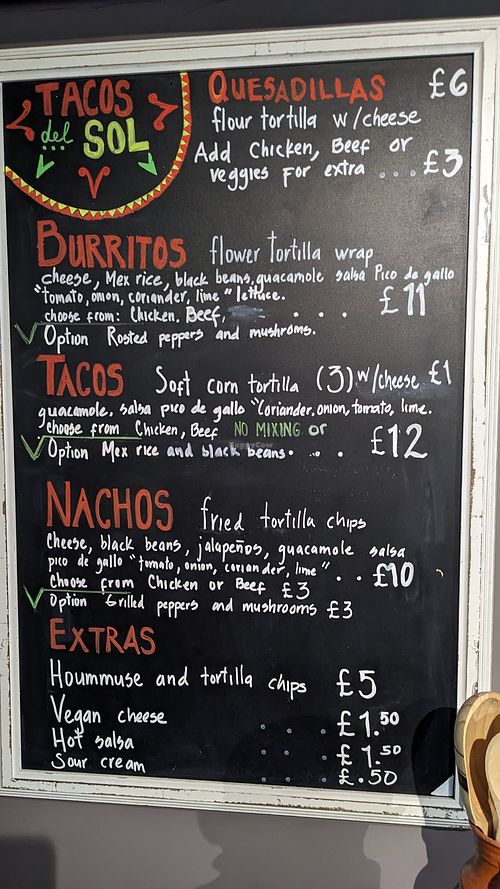 TACOS
del SOL
QUESADILLAS £6
flour tortilla w/cheese
Add Chicken, Beef or
veggies For extra ... £3
BURRITOS flower tortilla wrap
cheese, Mex rice, black beans, guacamole salsa Pico de gallo
"tomato, onion, coriander, lime" lettuce.
choose from: Chicken. Beef, . . . . £11
Option Rosted peppers and mushroms.
TACOS Soft corn tortilla (3) w/cheese £1
guacamole, salsa pico de gallo "Coriander, onion, tomato, lime.
choose from Chicken, Beef NO MIXING or
Option Mex rice and black beans. . . £12
NACHOS fried tortilla chips
Cheese, black beans, jalapeños, guacamole salsa
pico de gallo "tomato, onion, coriander, lime" . . £10
Choose from Chicken or Beef £3
Option Grilled peppers and mushrooms £3
EXTRAS
Hoummuse and tortilla chips £5
Vegan cheese . . . £1.50
Hot salsa . . . £1.50
Sour cream . . . £.50